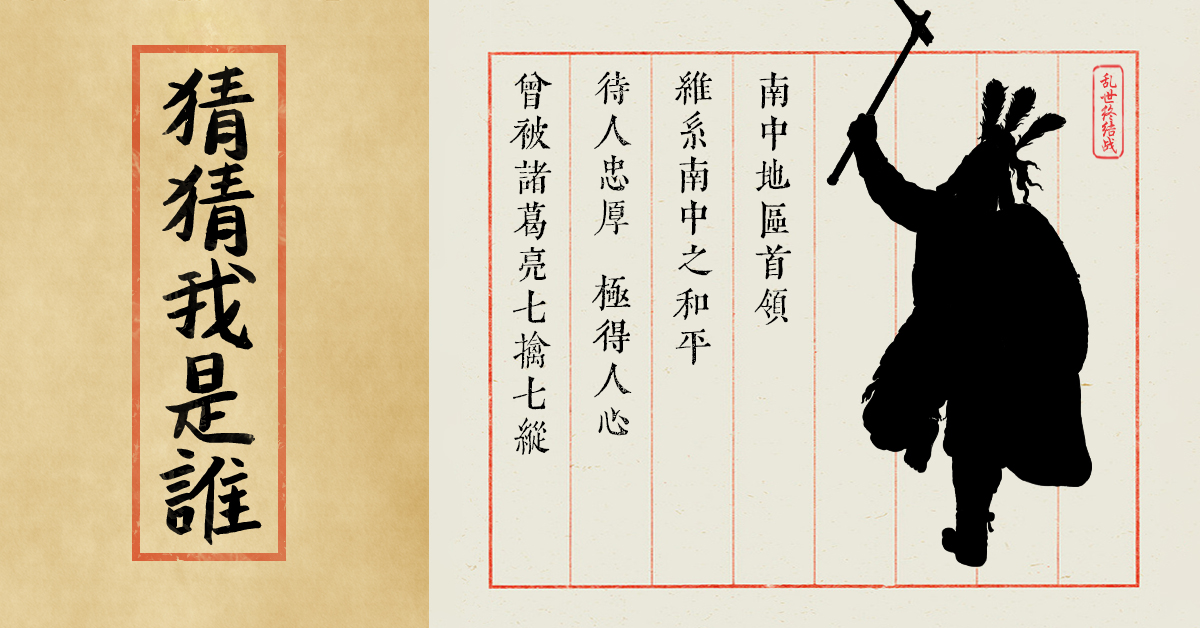 猜猜我是誰
乱世终结战
南中地區首領
維系南中之和平
待人忠厚 極得人心
曾被諸葛亮七擒七縱